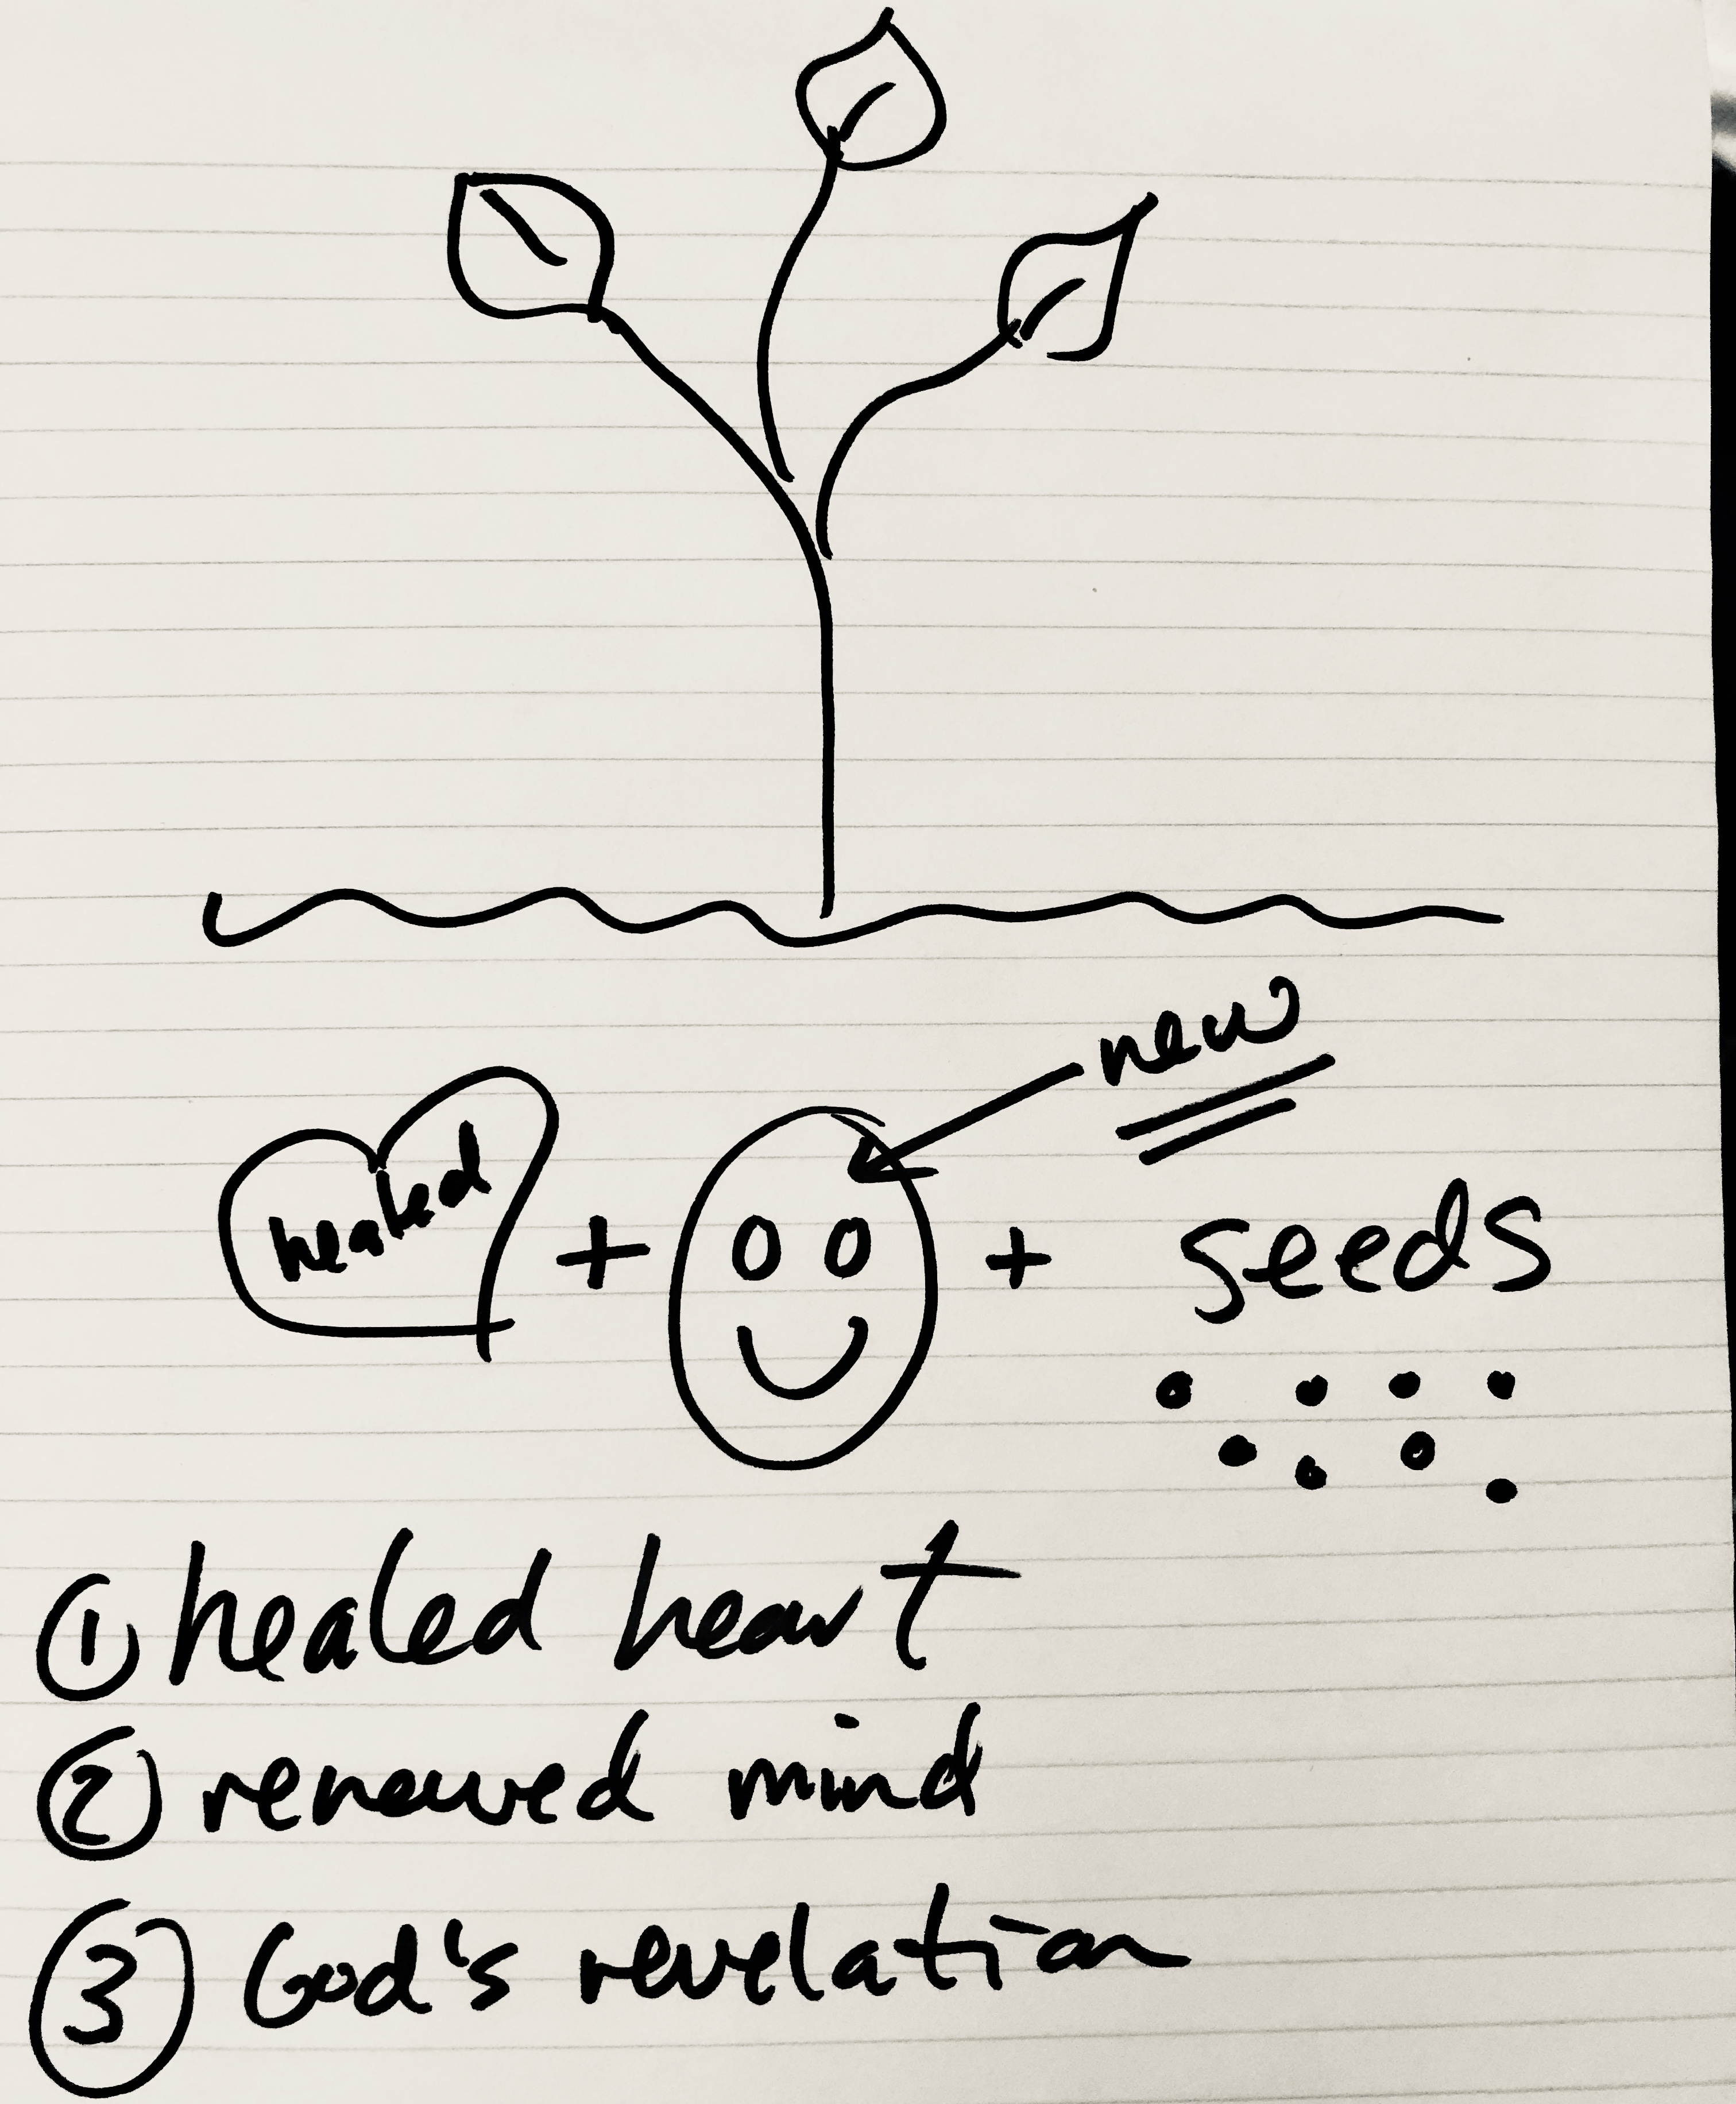 new
healed + + seeds
① healed heart
② renewed mind
③ God's revelation